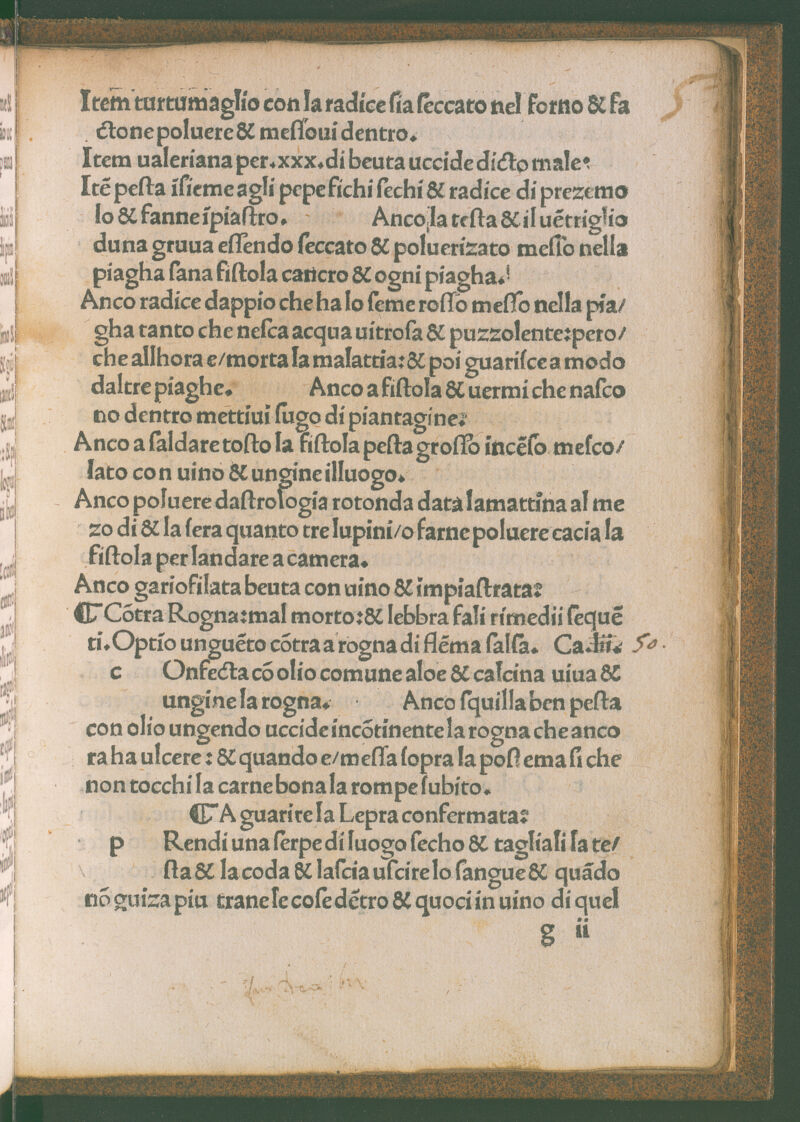 Item turtumaglio con la radice ſia ſeccato nel forno & fa
ctone poluere & meſſoui dentro.
Item ualeriana per.xxx.di beuta uccide dicto male:
Itē peſta īſieme agli pepe fichi ſechi & radice di prezemo
lo & fanne īpiaſtro. Anco la teſta & il uētriglio
duna gruua eſſendo ſeccato & poluerizato meſſo nella
piagha ſana fiſtola cancro & ogni piagha.
Anco radice dappio che ha lo ſeme roſſo meſſo nella pia/
gha tanto che neſca acqua uitroſa & puzzolente:pero/
che allhora e/morta la malattia:& poi guariſce a modo
daltre piaghe. Anco a fiſtola & uermi che naſco
no dentro mettiui ſugo di piantagine:
Anco a ſaldare toſto la fiſtola peſta groſſo incēſo meſco/
lato con uino & ungine illuogo.
Anco poluere daſtrologia rotonda data lamattina al me
zo di & la ſera quanto tre lupini/o farne poluere cacia la
fiſtola per landare a camera.
Anco gariofilata beuta con uino & impiaſtrata:
¶ Cōtra Rogna:mal morto:& lebbra fali rimedii ſequē
ti.Optio unguēto cōtra a rogna di flēma ſalſa. Ca.lii. 50.
c Onfecta cō olio comune aloe & calcina uiua &
ungine la rogna. Anco ſquilla ben peſta
con olio ungendo uccide incōtinente la rogna che anco
ra ha ulcere : & quando e/meſſa ſopra la poſtema ſi che
non tocchi la carne bona la rompe ſubito.
¶ A guarire la Lepra confermata:
p Rendi una ſerpe di luogo ſecho & tagliali la te/
ſta & la coda & laſcia uſcire lo ſangue & quādo
nō guiza piu trane le coſe dētro & quoci in uino di quel
g ii